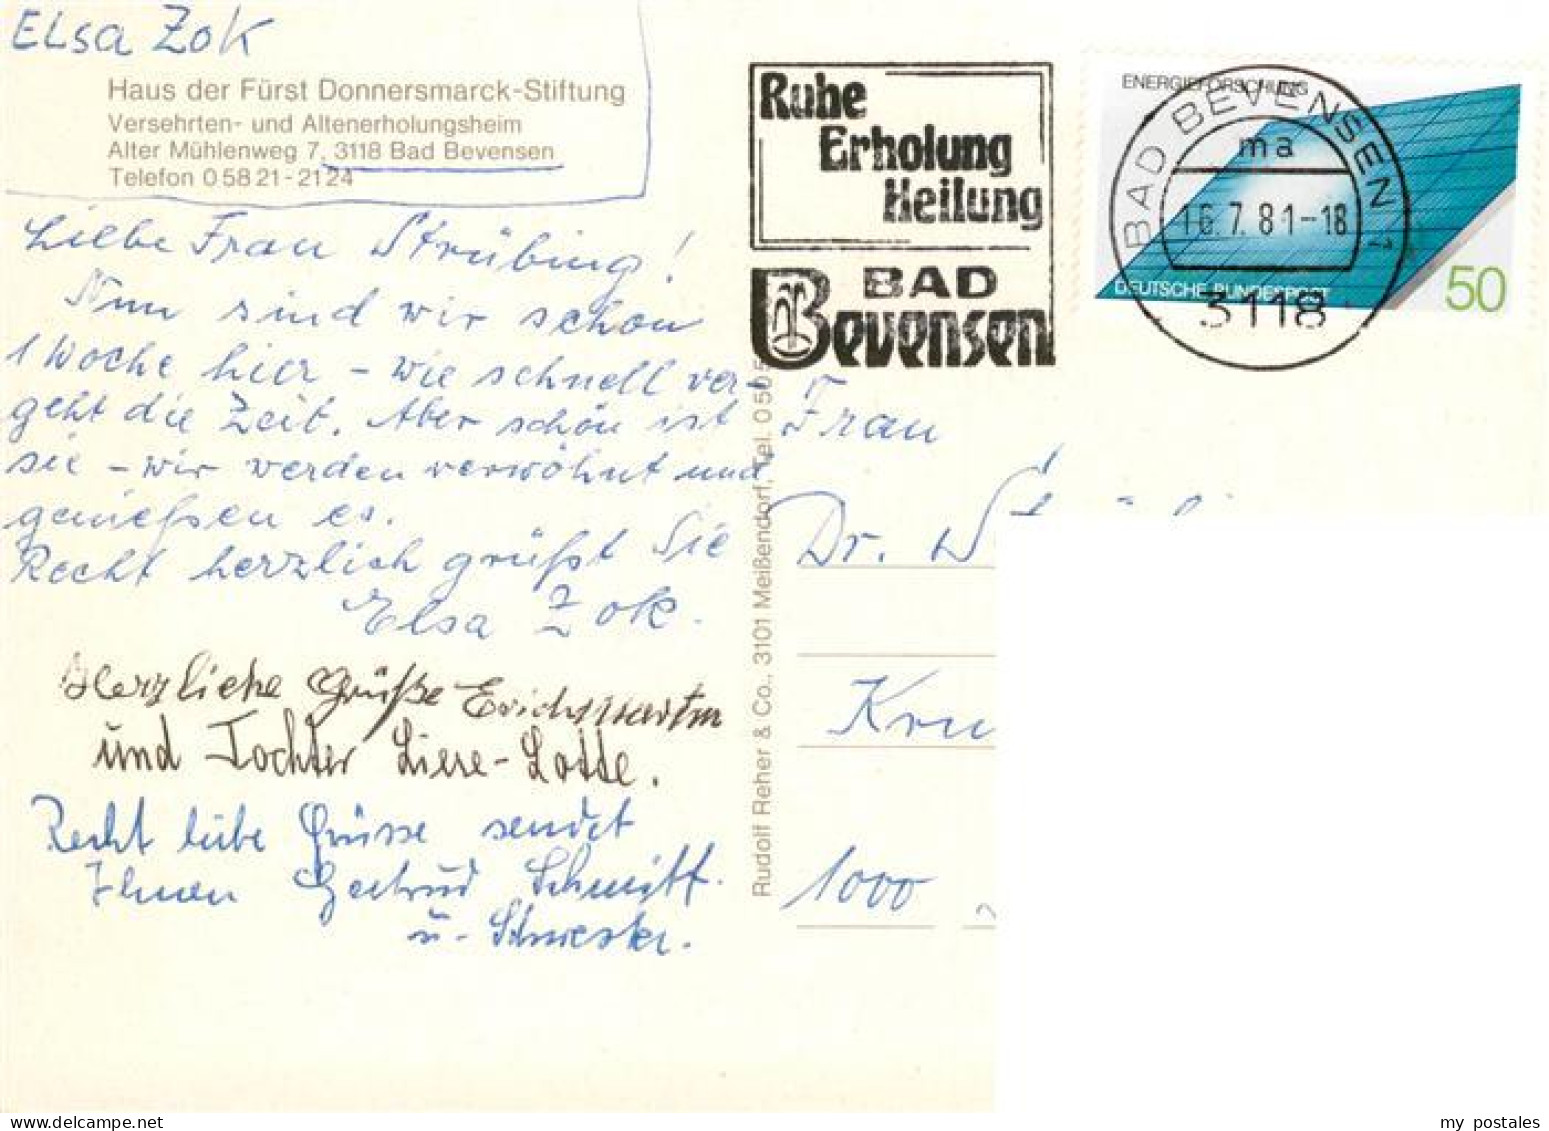 ELsa Zok
Haus der Fürst Donnersmarck-Stiftung
Versehrten- und Altenerholungsheim
Alter Mühlenweg 7, 3118 Bad Bevensen
Telefon 0 58 21 - 21 24
Liebe Frau Strübing!
Nun sind wir schon
1 Woche hier – wie schnell ver-
geht die Zeit. Aber schön ist
sie – wir werden verwöhnt und
genießen es.
Recht herzlich grüßt Sie
Elsa Zok.
Herzliche Grüße Erich Martin
und Tochter Liese-Lotte.
Recht liebe Grüsse sendet
Ihnen Gertrud Schmitt.
u. Schwester.
Rudolf Reher & Co., 3101 Meißendorf, Tel. 0 50 5
Ruhe
Erholung
Heilung
BAD
Bevensen
ENERGIEFORSCHUNG
DEUTSCHE BUNDESPOST
50
BAD BEVENSEN 1
ma
16.7.81-18
3118
Frau
Dr.
Kru
1000
my postales